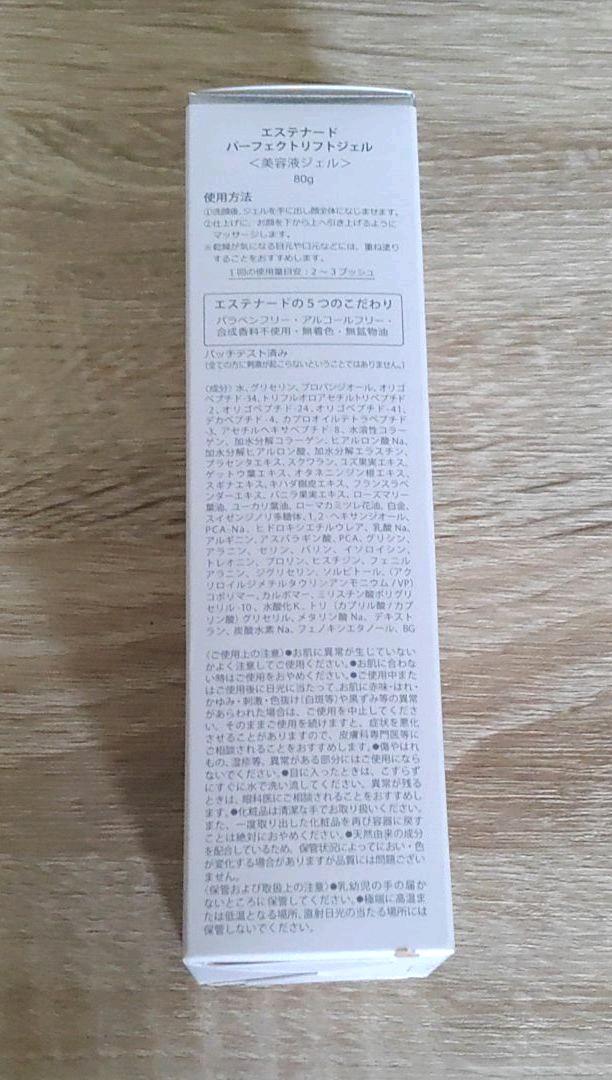 エステナード
パーフェクトリフトジェル
＜美容液ジェル＞
80g
使用方法
①洗顔後、ジェルを手に出し顔全体になじませます。
②仕上げに、お顔を下から上へ引き上げるように
マッサージします。
※乾燥が気になる目元や口元などには、重ね塗り
することをおすすめします。
1回の使用量目安：2～3プッシュ
エステナードの5つのこだわり
パラベンフリー・アルコールフリー・
合成香料不使用・無着色・無鉱物油
パッチテスト済み
(全ての方に刺激が起こらないということではありません。)
〈成分〉水、グリセリン、プロパンジオール、オリゴ
ペプチド-34、トリフルオロアセチルトリペプチド
-2、オリゴペプチド-24、オリゴペプチド-41、
デカペプチド-4、カプロオイルテトラペプチド
-3、アセチルヘキサペプチド-8、水溶性コラー
ゲン、加水分解コラーゲン、ヒアルロン酸Na、
加水分解ヒアルロン酸、加水分解エラスチン、
プラセンタエキス、スクワラン、ユズ果実エキス、
ゲットウ葉エキス、オタネニンジン根エキス、
スギナエキス、キハダ樹皮エキス、フランスラベ
ンダーエキス、バニラ果実エキス、ローズマリー
葉油、ユーカリ葉油、ローマカミツレ花油、白金、
スイゼンジノリ多糖体、1,2-ヘキサンジオール、
PCA-Na、ヒドロキシエチルウレア、乳酸Na、
アルギニン、アスパラギン酸、PCA、グリシン、
アラニン、セリン、バリン、イソロイシン、
トレオニン、プロリン、ヒスチジン、フェニル
アラニン、ジグリセリン、ソルビトール、(アク
リロイルジメチルタウリンアンモニウム/VP)
コポリマー、カルボマー、ミリスチン酸ポリグリ
セリル-10、水酸化K、トリ（カプリル酸/カプ
リン酸）グリセリル、メタリン酸Na、デキスト
ラン、炭酸水素Na、フェノキシエタノール、BG
〈ご使用上の注意〉●お肌に異常が生じていない
かよく注意してご使用ください。●お肌に合わな
い時はご使用をおやめください。●ご使用中また
はご使用後に日光に当たって、お肌に赤味・はれ・
かゆみ・刺激・色抜け(白斑等)や黒ずみ等の異常
があらわれた場合は、ご使用を中止してくださ
い。そのままご使用を続けますと、症状を悪化
させることがありますので、皮膚科専門医等に
ご相談されることをおすすめします。●傷やはれ
もの、湿疹等、異常がある部分にはご使用になら
ないでください。●目に入ったときは、こすらず
にすぐに水で洗い流してください。異常が残る
ときは、眼科医にご相談されることをおすすめし
ます。●化粧品は清潔な手でお取り扱いください。
また、一度取り出した化粧品を再び容器に戻す
ことは絶対におやめください。●天然由来の成分
を配合しているため、保管状況によってにおい・色
が変化する場合がありますが品質には問題ござい
ません。
〈保管および取扱上の注意〉●乳幼児の手の届か
ないところに保管してください。●極端に高温ま
たは低温となる場所、直射日光の当たる場所には
保管しないでください。